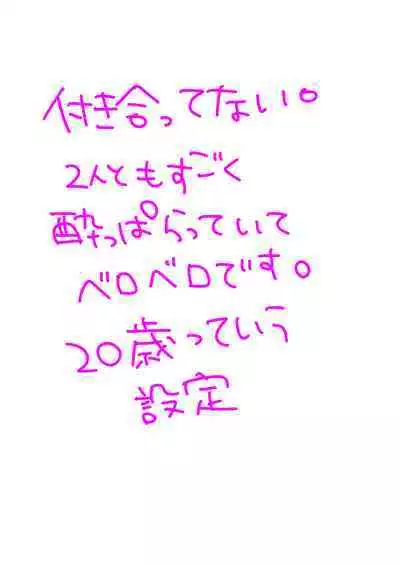 付き合ってない。
2人ともすごく
酔っぱらっていて
ベロベロです。
20歳っていう
設定